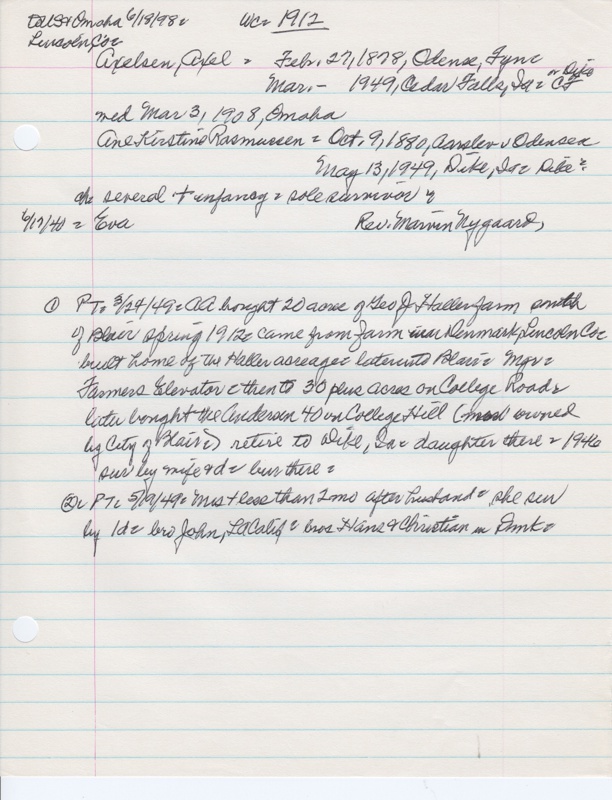 to US & Omaha 6/18/98 = WC = 1912
Lincoln Co =
Axelsen, Axel = Febr. 27, 1878, Odense, Fyn =
Mar. - 1949, Cedar Falls, Ia = or Dike CF
med Mar 3, 1908, Omaha
Ane Kirstine Rasmussen = Oct. 9, 1880, Aarslev v Odense =
May 13, 1949, Dike, Ia = Dike =
ch = several + infancy = sole survivor =
6/17/40 = Eva Rev. Marvin Nygaard,
① PT = 3/24/49 = AA bought 20 acre of Geo J. Haller farm south
of Blair spring 1912 = came from farm near Denmark, Lincoln Co =
built home of the Haller acreage = later into Blair = Mgr =
Farmers Elevator = then to 30 plus acres on College Road =
later bought the Andersen 40 on College Hill (most owned
by City of Blair =) retire to Dike, Ia = daughter there = 1946
sur by wife & d = bur there =
② = PT = 5/19/49 = Mrs + less than 2 mo after husband = she sur
by 1d = bro John, LA Calif = bros Hans & Christian in Dmk =